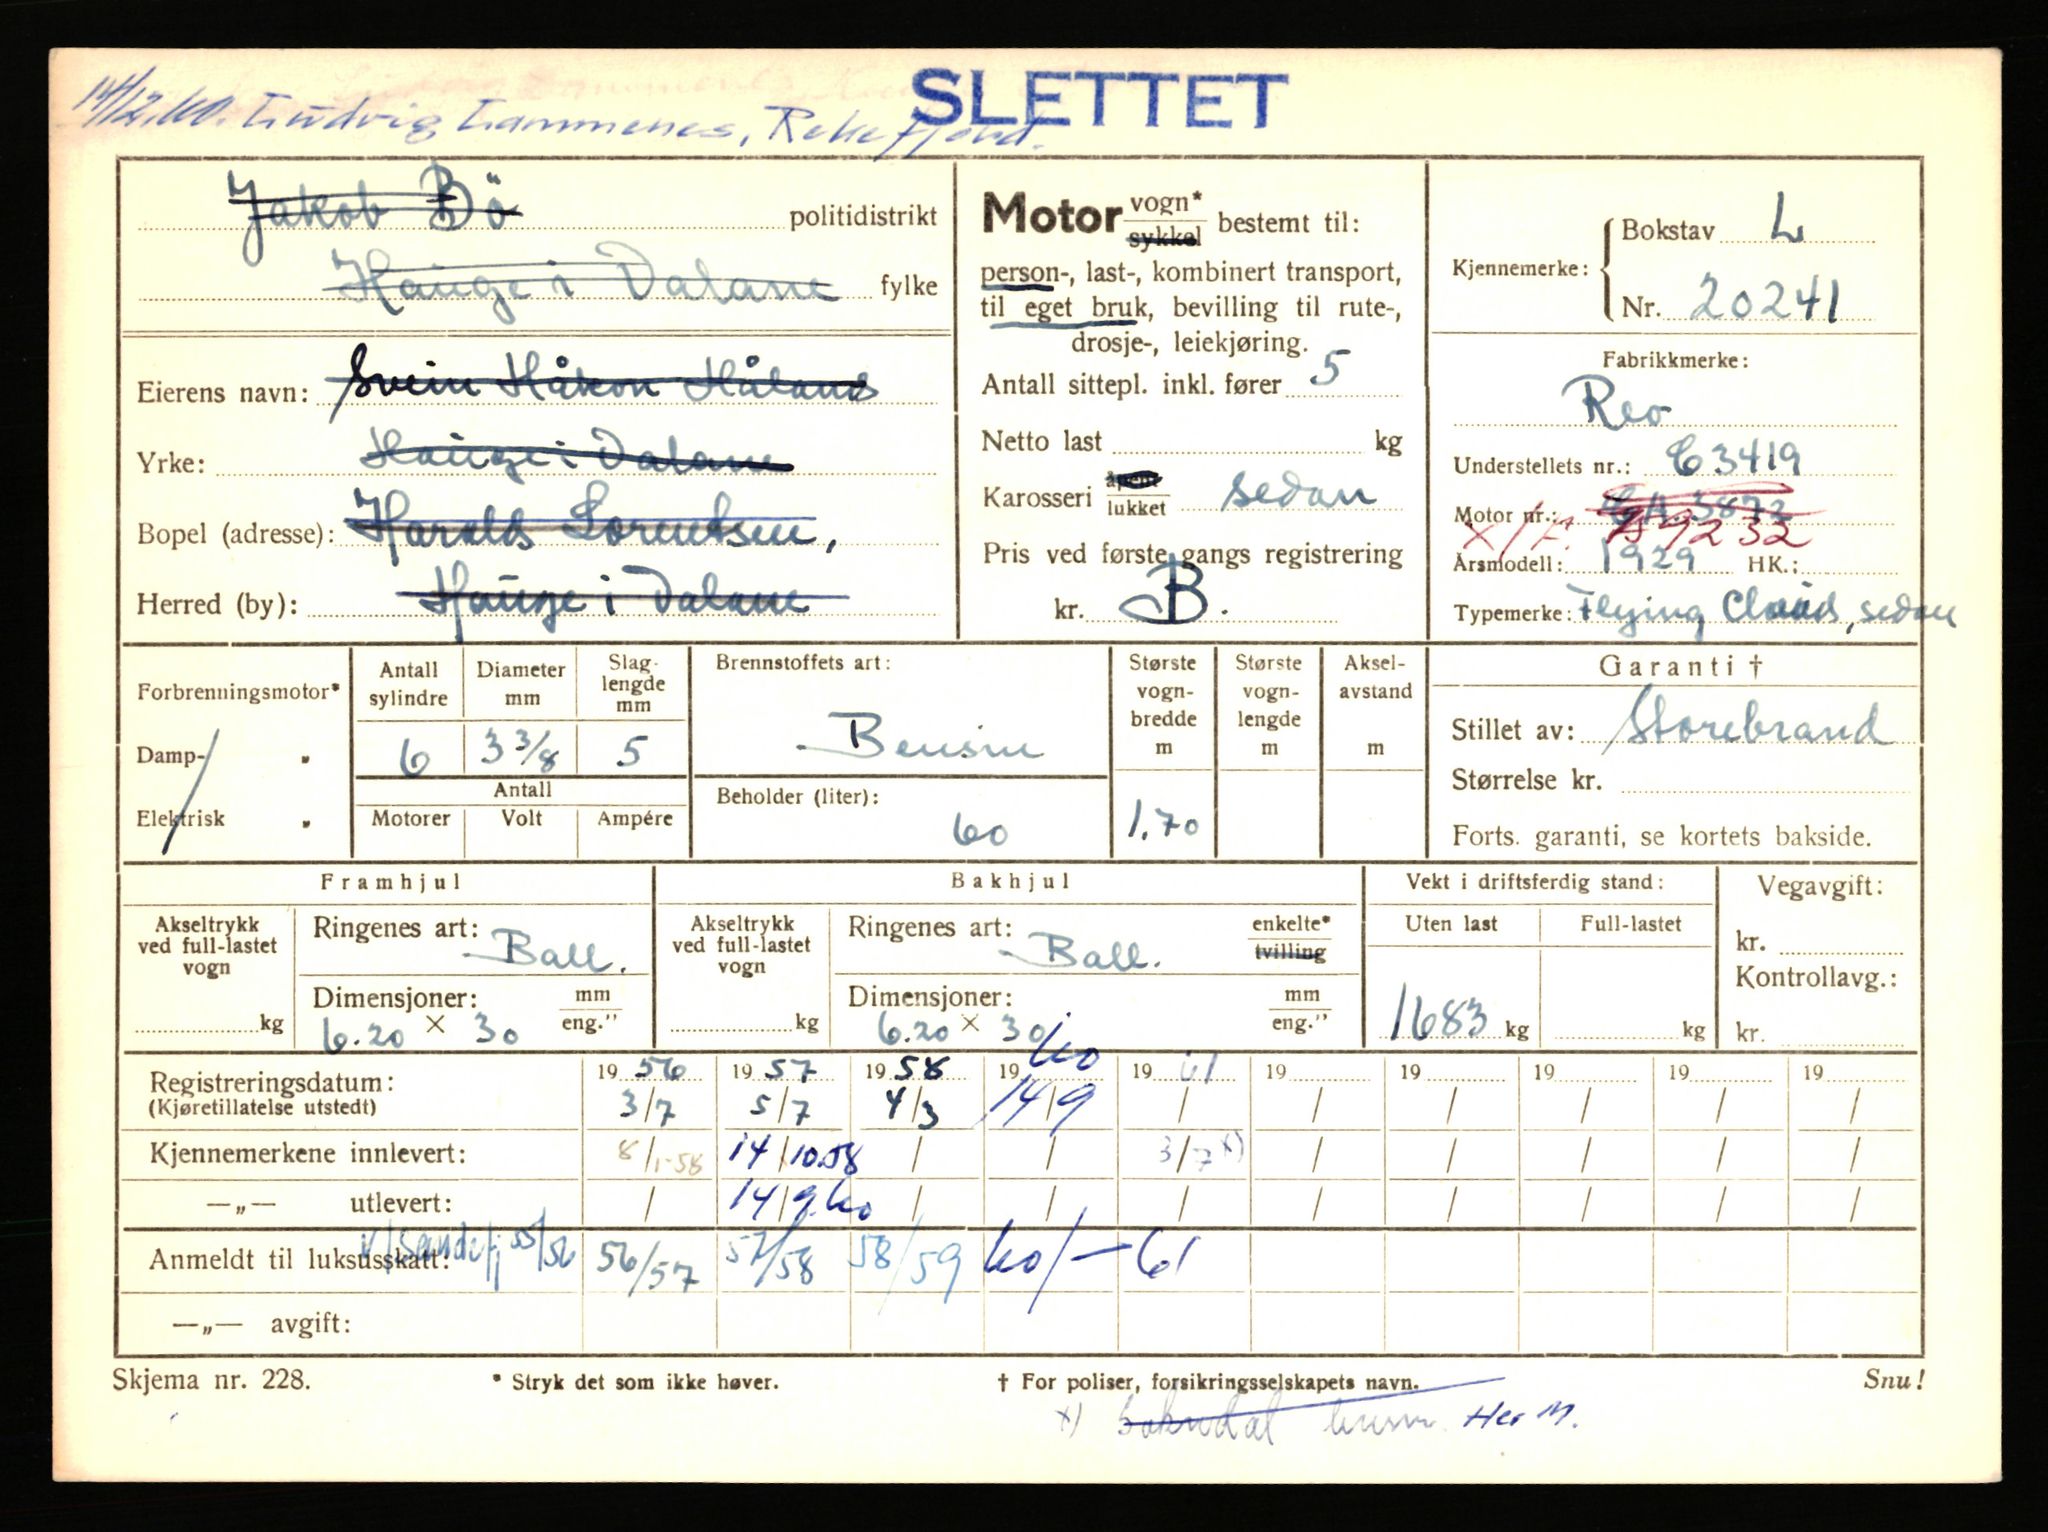 SLETTET
14/12.60. Ludvig Lammenes, Rekefjord.
Jakob Bö politidistrikt
Hauge i Dalane fylke
Eierens navn: Svein Håkon Håland
Yrke: Hauge i Dalane
Bopel (adresse): Harald Lorentsen,
Herred (by): Hauge i Dalane
Motor vogn* sykkel bestemt til:
person-, last-, kombinert transport,
til eget bruk, bevilling til rute-,
drosje-, leiekjøring.
Antall sittepl. inkl. fører 5
Netto last kg
Karosseri åpent lukket sedan
Pris ved første gangs registrering
kr. B.
Kjennemerke: Bokstav L
Nr. 20241
Fabrikkmerke:
Reo
Understellets nr.: C 3419
Motor nr.: 3873
x/ 9232
Årsmodell: 1929 HK.:
Typemerke: Flying Clouds, sedan
Forbrenningsmotor*
Damp- "
Elektrisk "
Antall sylindre 6
Diameter mm 3 3/8
Slag-lengde mm 5
Antall
Motorer Volt Ampére
Brennstoffets art:
Bensin
Beholder (liter):
60
Største vogn-bredde m 1.70
Største vogn-lengde m
Aksel-avstand m
Garanti †
Stillet av: Storebrand
Størrelse kr.
Forts. garanti, se kortets bakside.
Framhjul
Akseltrykk ved full-lastet vogn kg
Ringenes art: Ball.
Dimensjoner: mm eng."
6.20 × 30
Bakhjul
Akseltrykk ved full-lastet vogn kg
Ringenes art: Ball. enkelte* tvilling
Dimensjoner: mm eng."
6.20 × 30
Vekt i driftsferdig stand:
Uten last Full-lastet
1683 kg kg
Vegavgift:
kr.
Kontrollavg.:
kr.
Registreringsdatum: 19 56 19 57 19 58 19 60 19 61 19 19 19 19 19
(Kjøretillatelse utstedt) 3/7 5/7 4/3 14/9 / / / / / /
Kjennemerkene innlevert: 8/1-58 14/10.58 / / 3/7 x) / / / / /
—„— utlevert: / 14/9.60 / / / / / / / /
Anmeldt til luksusskatt: 55/56 56/57 57/58 58/59 60/— 61
—„— avgift:
Skjema nr. 228.
* Stryk det som ikke høver.
† For poliser, forsikringsselskapets navn.
Snu!
x) Sokndal Her M.